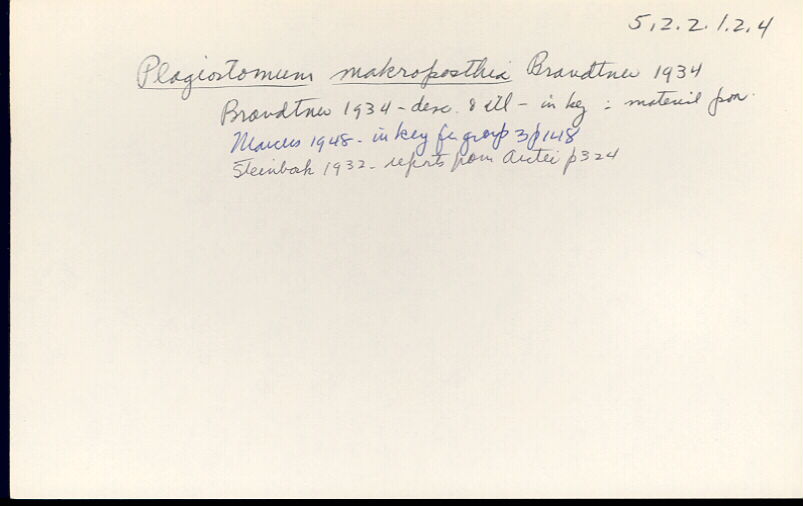 5.2.2.1.2.4
Plagiostomum makroposthia Brandtner 1934
Brandtner 1934 - desc. & ill - in key : material poor.
Marcus 1948 - in key for group 3 p148
Steinbock 1932 - reports from Arctic p324